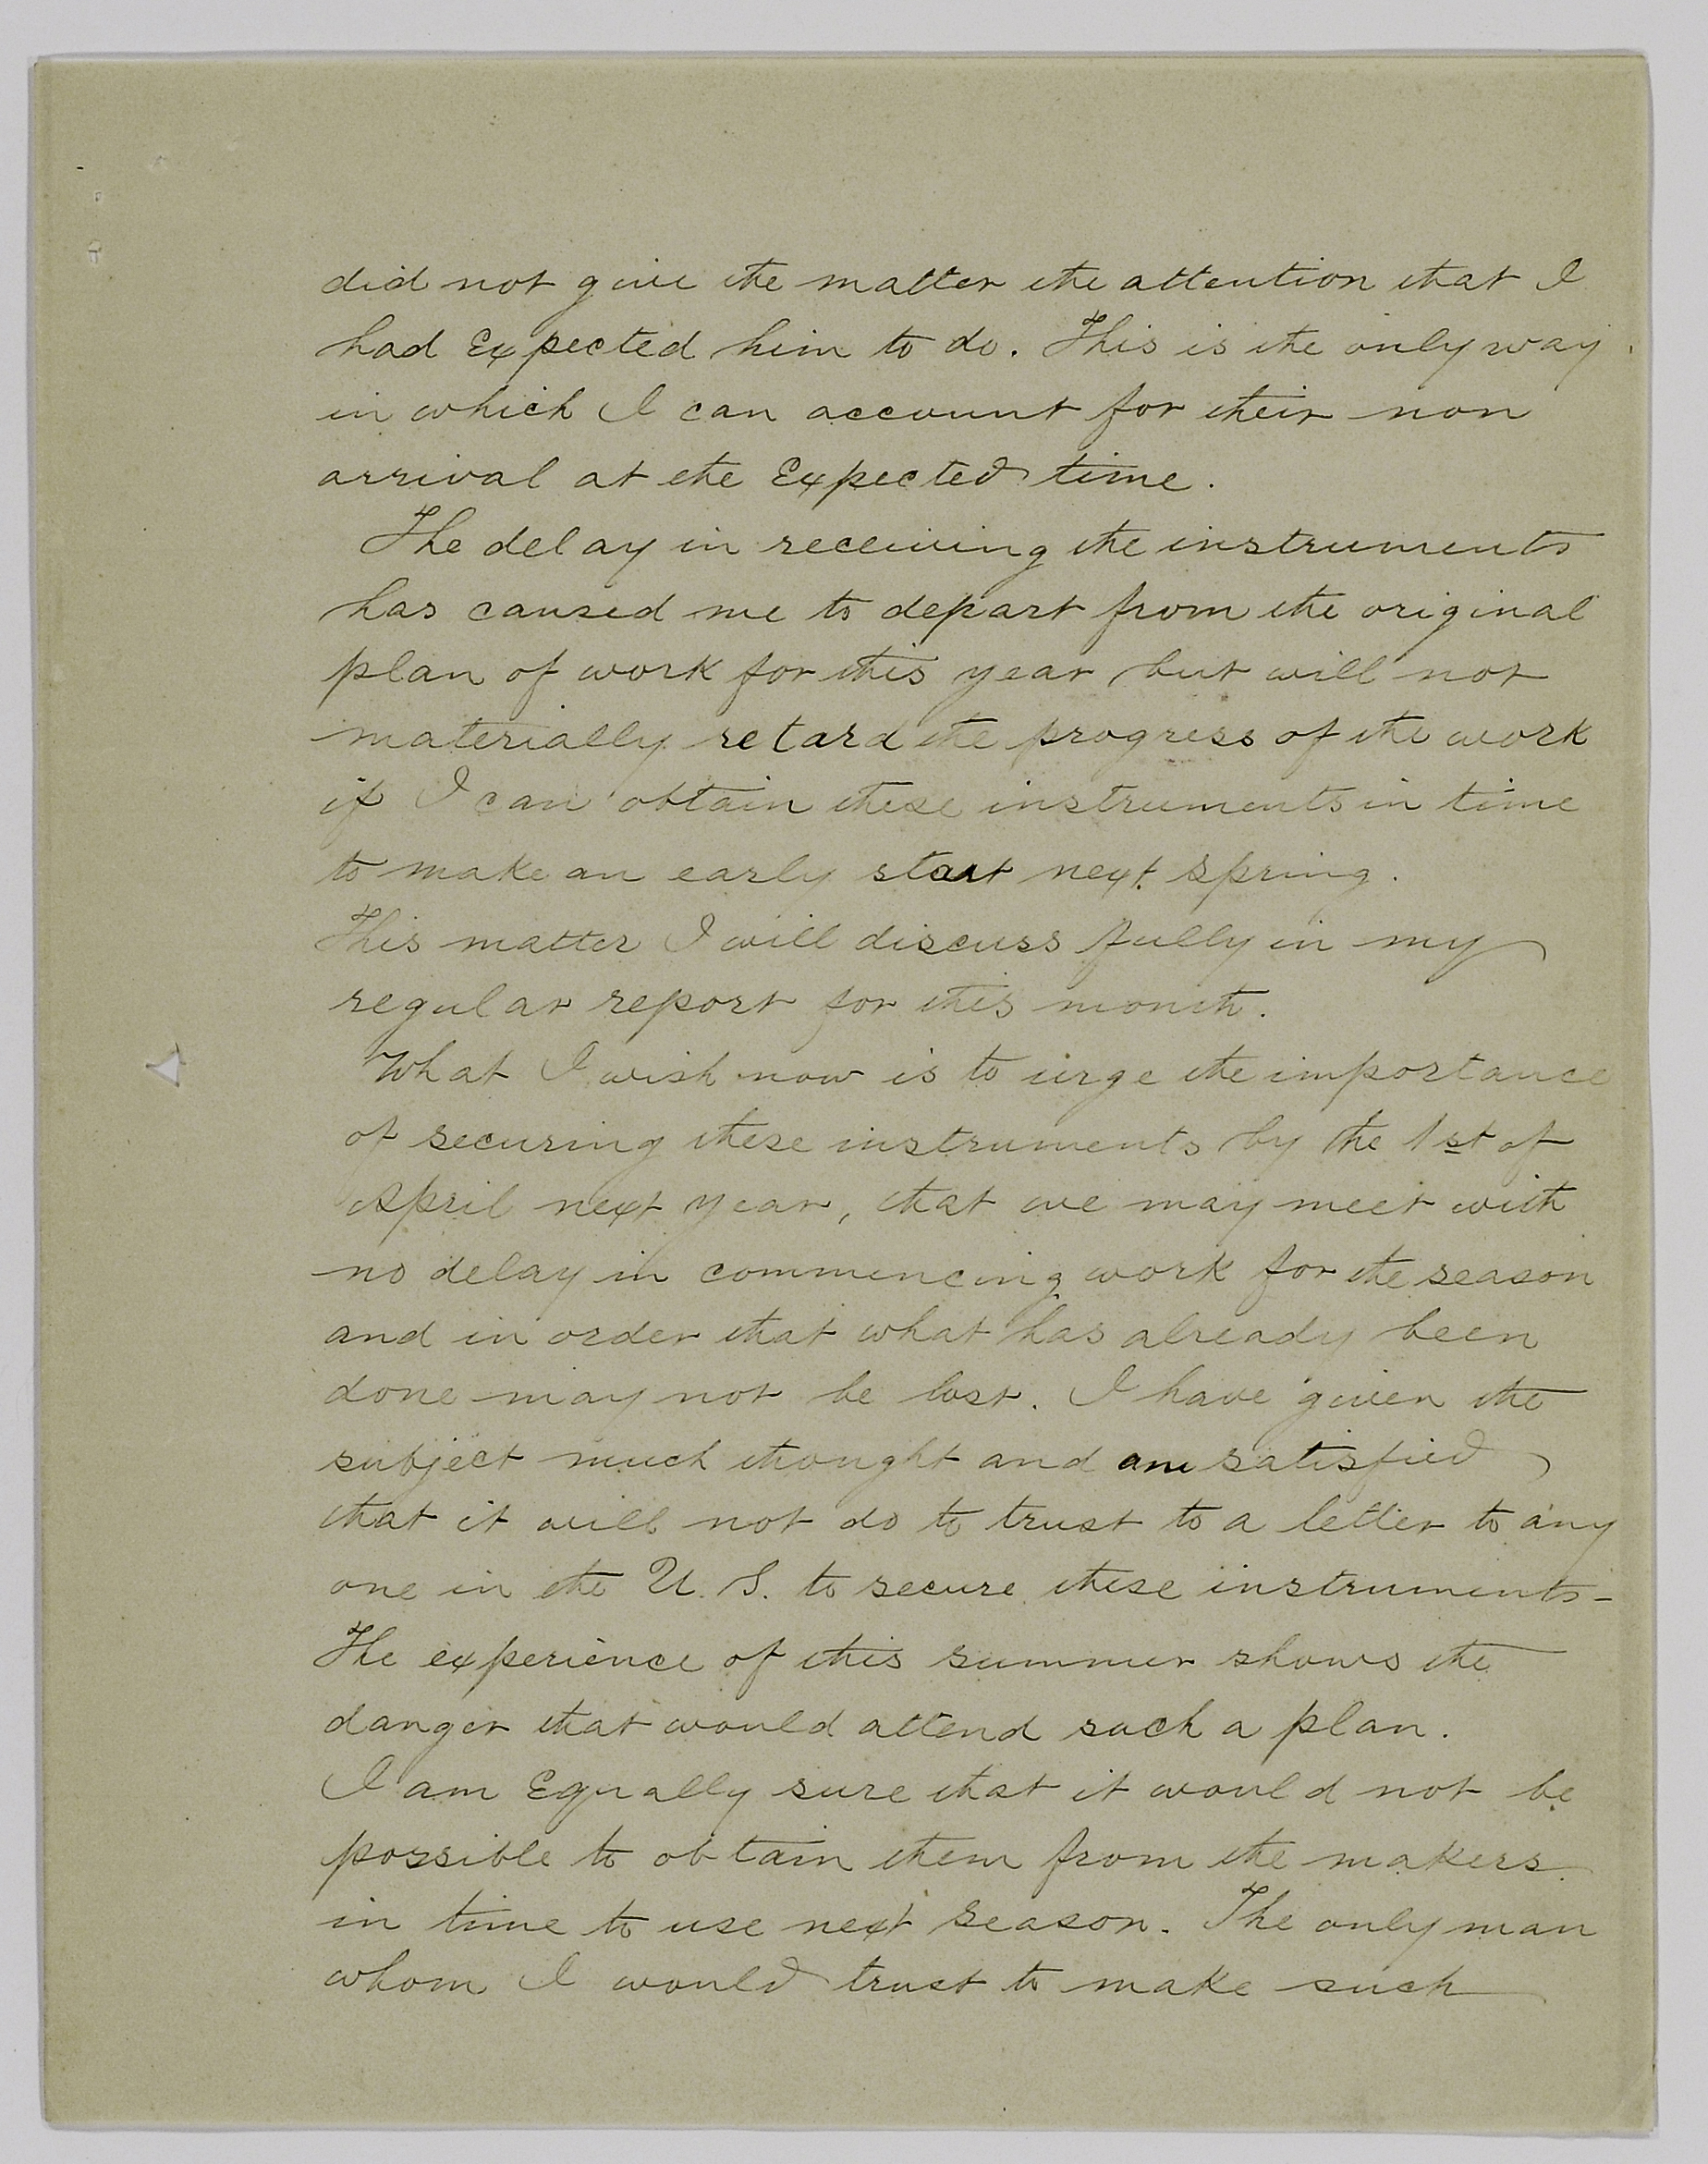 did not give the matter the attention that I
had Expected him to do. This is the only way
in which I can account for their non
arrival at the Expected time.
The delay in receiving the instruments
has caused me to depart from the original
plan of work for this year but will not
materially retard the progress of the work
if I can obtain these instruments in time
to make an early start next spring.
This matter I will discuss fully in my
regular report for this month.
What I wish now is to urge the importance
of securing these instruments by the 1st of
April next year, that we may meet with
no delay in commencing work for the season
and in order that what has already been
done may not be lost. I have given the
subject much thought and am satisfied
that it will not do to trust to a letter to any
one in the U. S. to secure these instruments-
The experience of this summer shows the
danger that would attend such a plan.
I am Equally sure that it would not be
possible to obtain them from the makers
in time to use next season. The only man
whom I would trust to make such